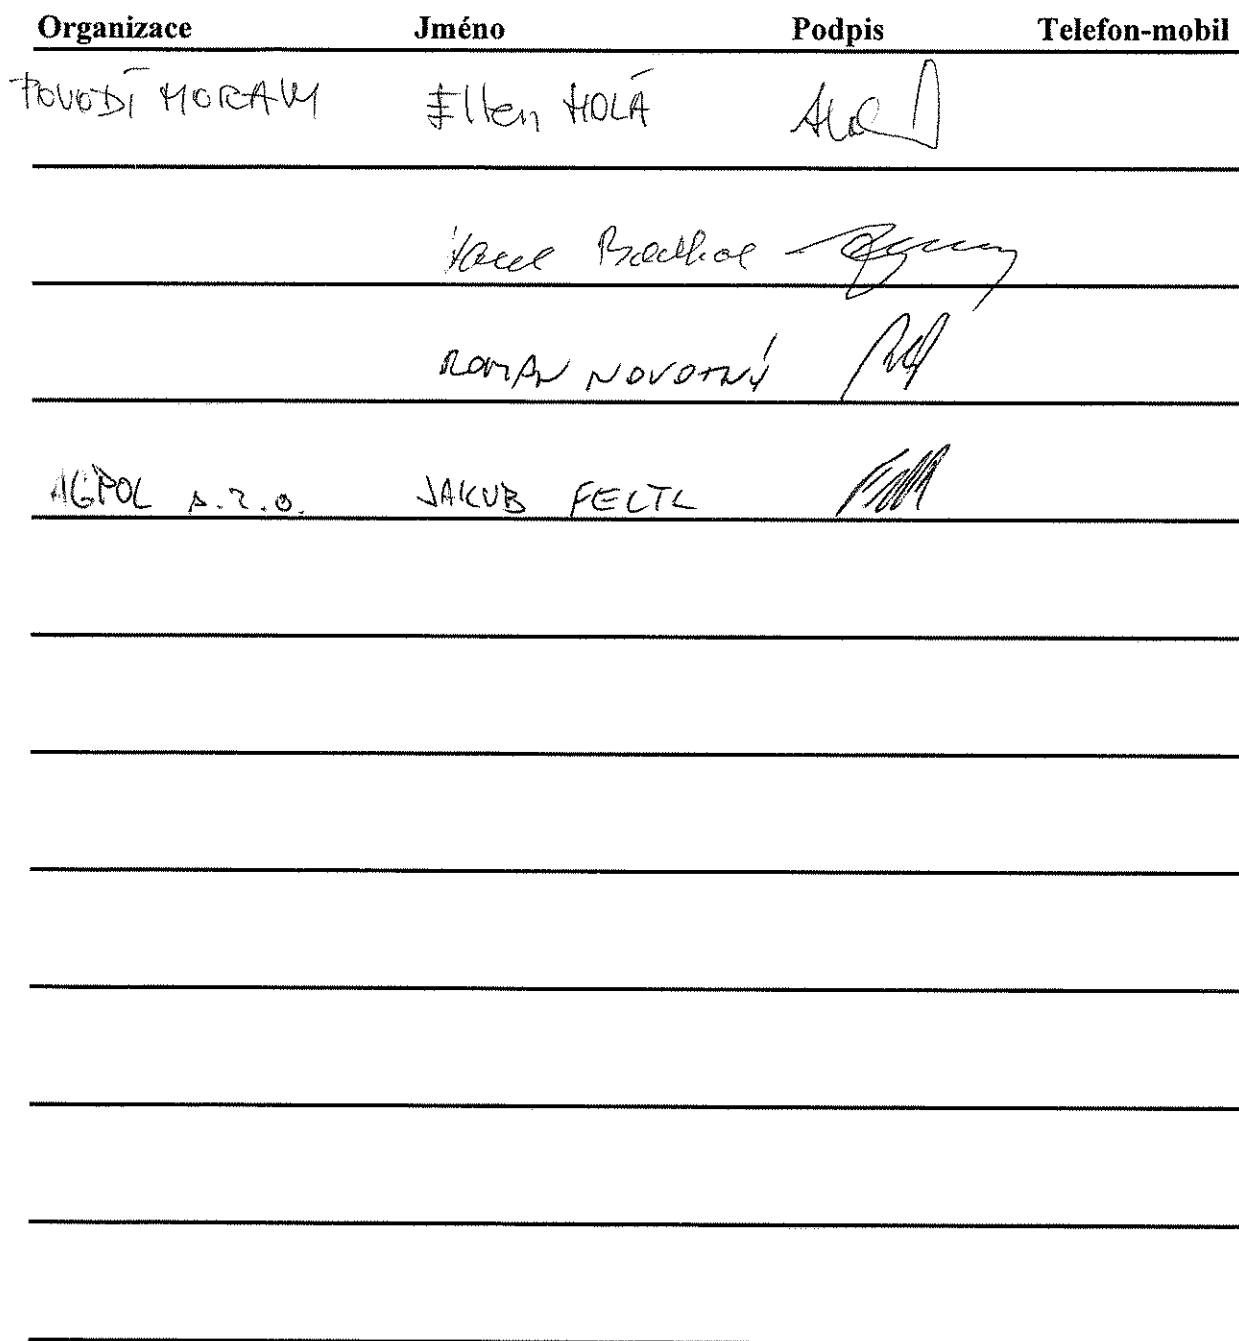 Organizace Jméno Podpis Telefon-mobil
POVODÍ MORAVY Ellen HOLÁ
ROMAN NOVOTNÝ
AGPOL s.r.o. JAKUB FELTL